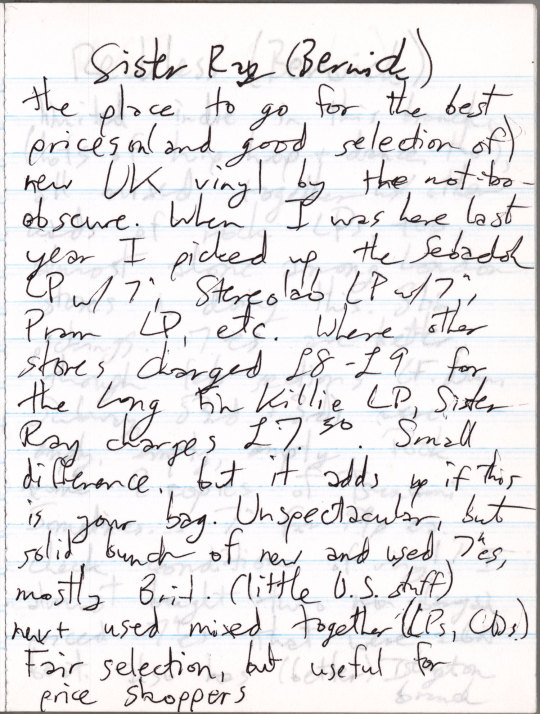 Sister Ray (Berwick)
the place to go for the best
prices on (and good selection of)
new UK vinyl by the not-too-
obscure. When I was here last
year I picked up the Sebadoh
LP w/ 7", Stereolab LP w/7",
Pram LP, etc. Where other
stores charged £8-£9 for
the Long Fin Killie LP, Sister
Ray charges £7.50. Small
difference, but it adds up if this
is your bag. Unspectacular, but
solid bunch of new and used 7"es,
mostly Brit. (little U.S. stuff)
new + used mixed together (LPs, CDs.)
Fair selection, but useful for
price shoppers